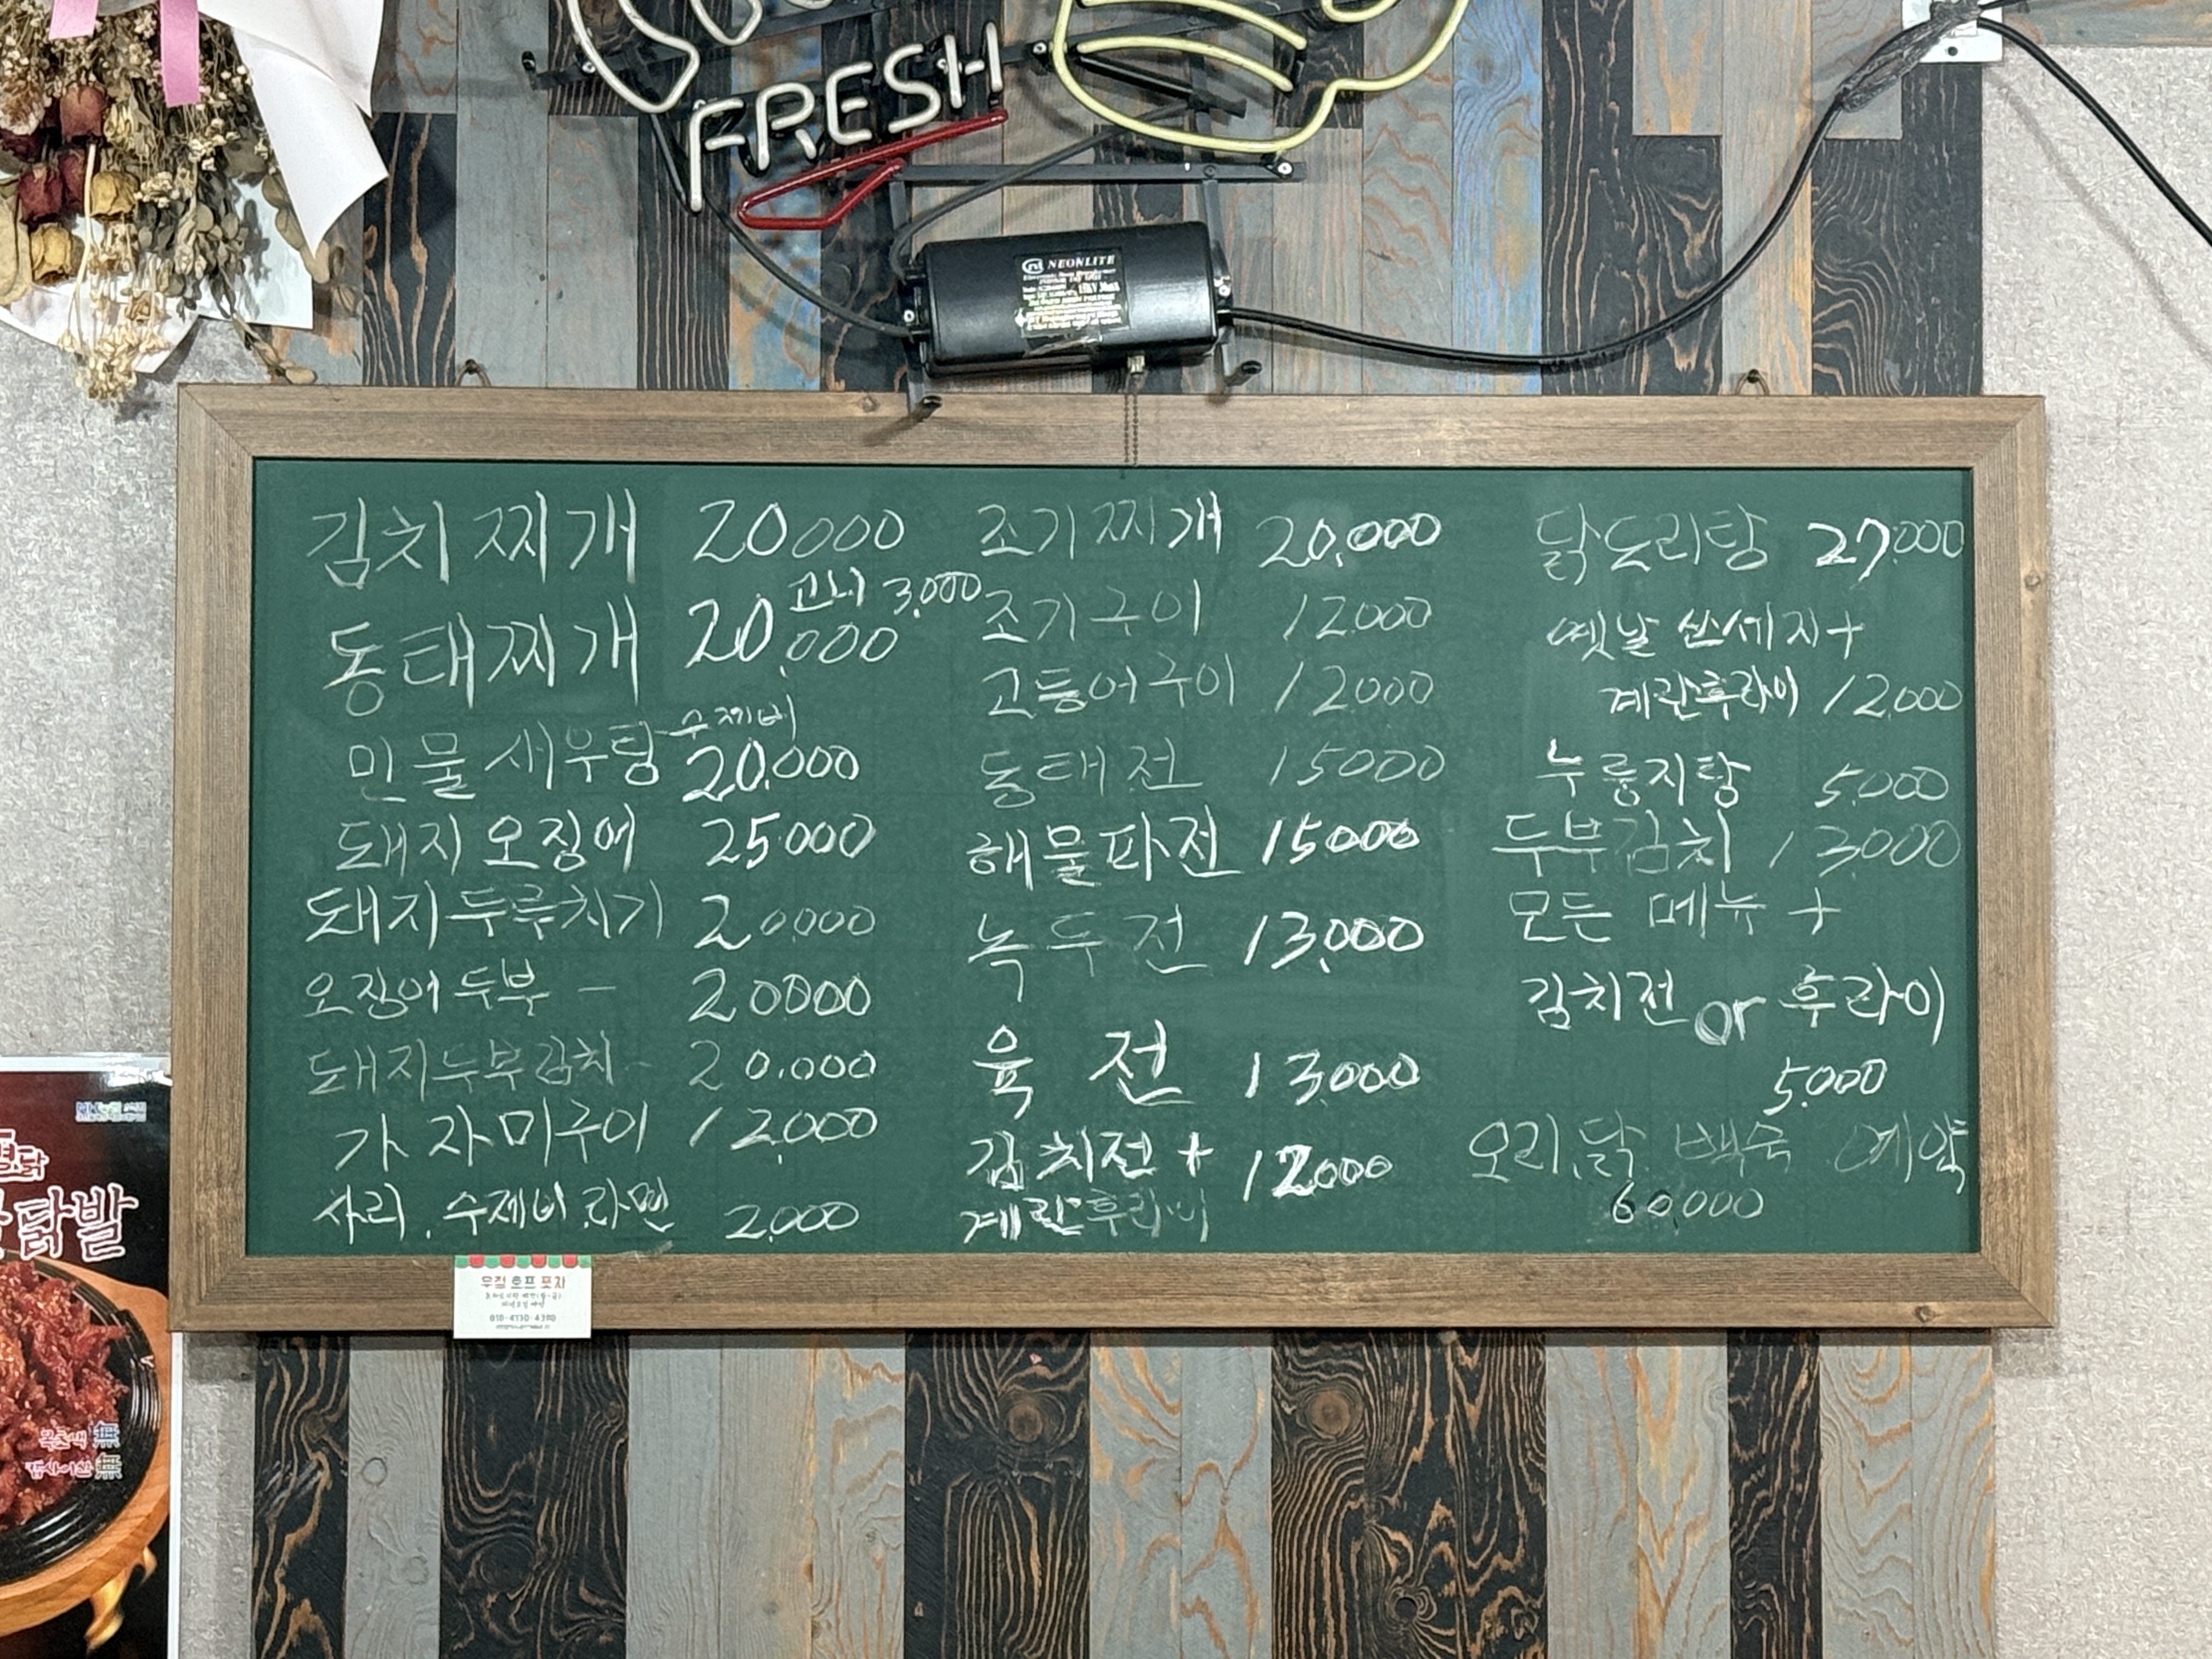 FRESH
NEONLITE
15KV 30mA
김치찌개 20000
고니 3,000
동태찌개 20,000
수제비
민물새우탕 20,000
돼지오징어 25,000
돼지두루치기 20,000
오징어두부 - 20000
돼지두부김치 - 20,000
가자미구이 12,000
사리, 수제비, 라면 2,000
조기찌개 20,000
조기구이 12000
고등어구이 12000
동태전 15000
해물파전 15000
녹두전 13,000
육전 13,000
김치전 + 12000
계란후라이
닭도리탕 27,000
옛날 쏘세지+
계란후라이 12,000
누룽지탕 5,000
두부김치 13,000
모든 메뉴 +
김치전 or 후라이
5,000
오리,닭 백숙 예약
60,000
호프 포차
010-4130-4380
닭발
無
無